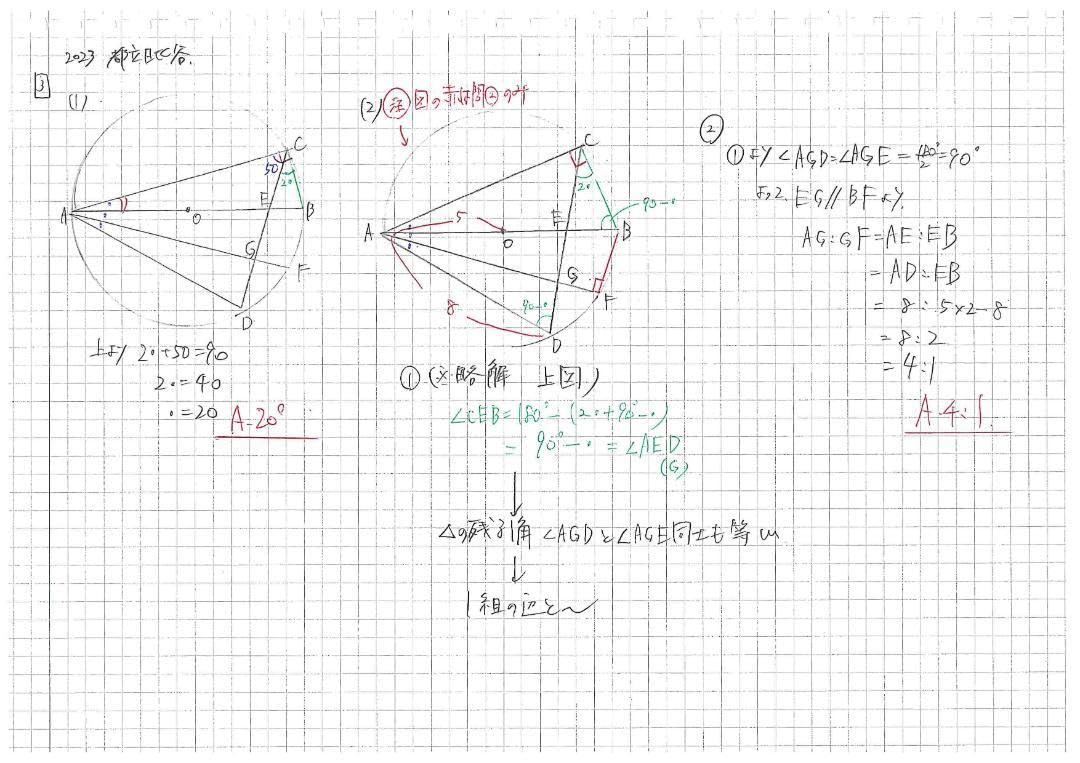 2023 都立日比谷.
3
(1)
C
50
2・
A
O
E
B
G
F
D
上より 2・+50=90
2・=40
・=20
A.20°
(2)
図の赤は問②のみ
C
2・
90-・
A
5
O
E
B
G
F
8
90-・
D
① (※略解 上図)
∠CEB=180°-(2・+90°-・)
= 90°-・ = ∠AED
(G)
△の残り1角 ∠AGDと∠AGE同士も等しい
1組の辺と〜
②
①より∠AGD=∠AGE=180°/2=90°
よって、EG//BFより、
AG:GF=AE:EB
=AD:EB
= 8:5×2-8
=8:2
=4:1
A.4:1.